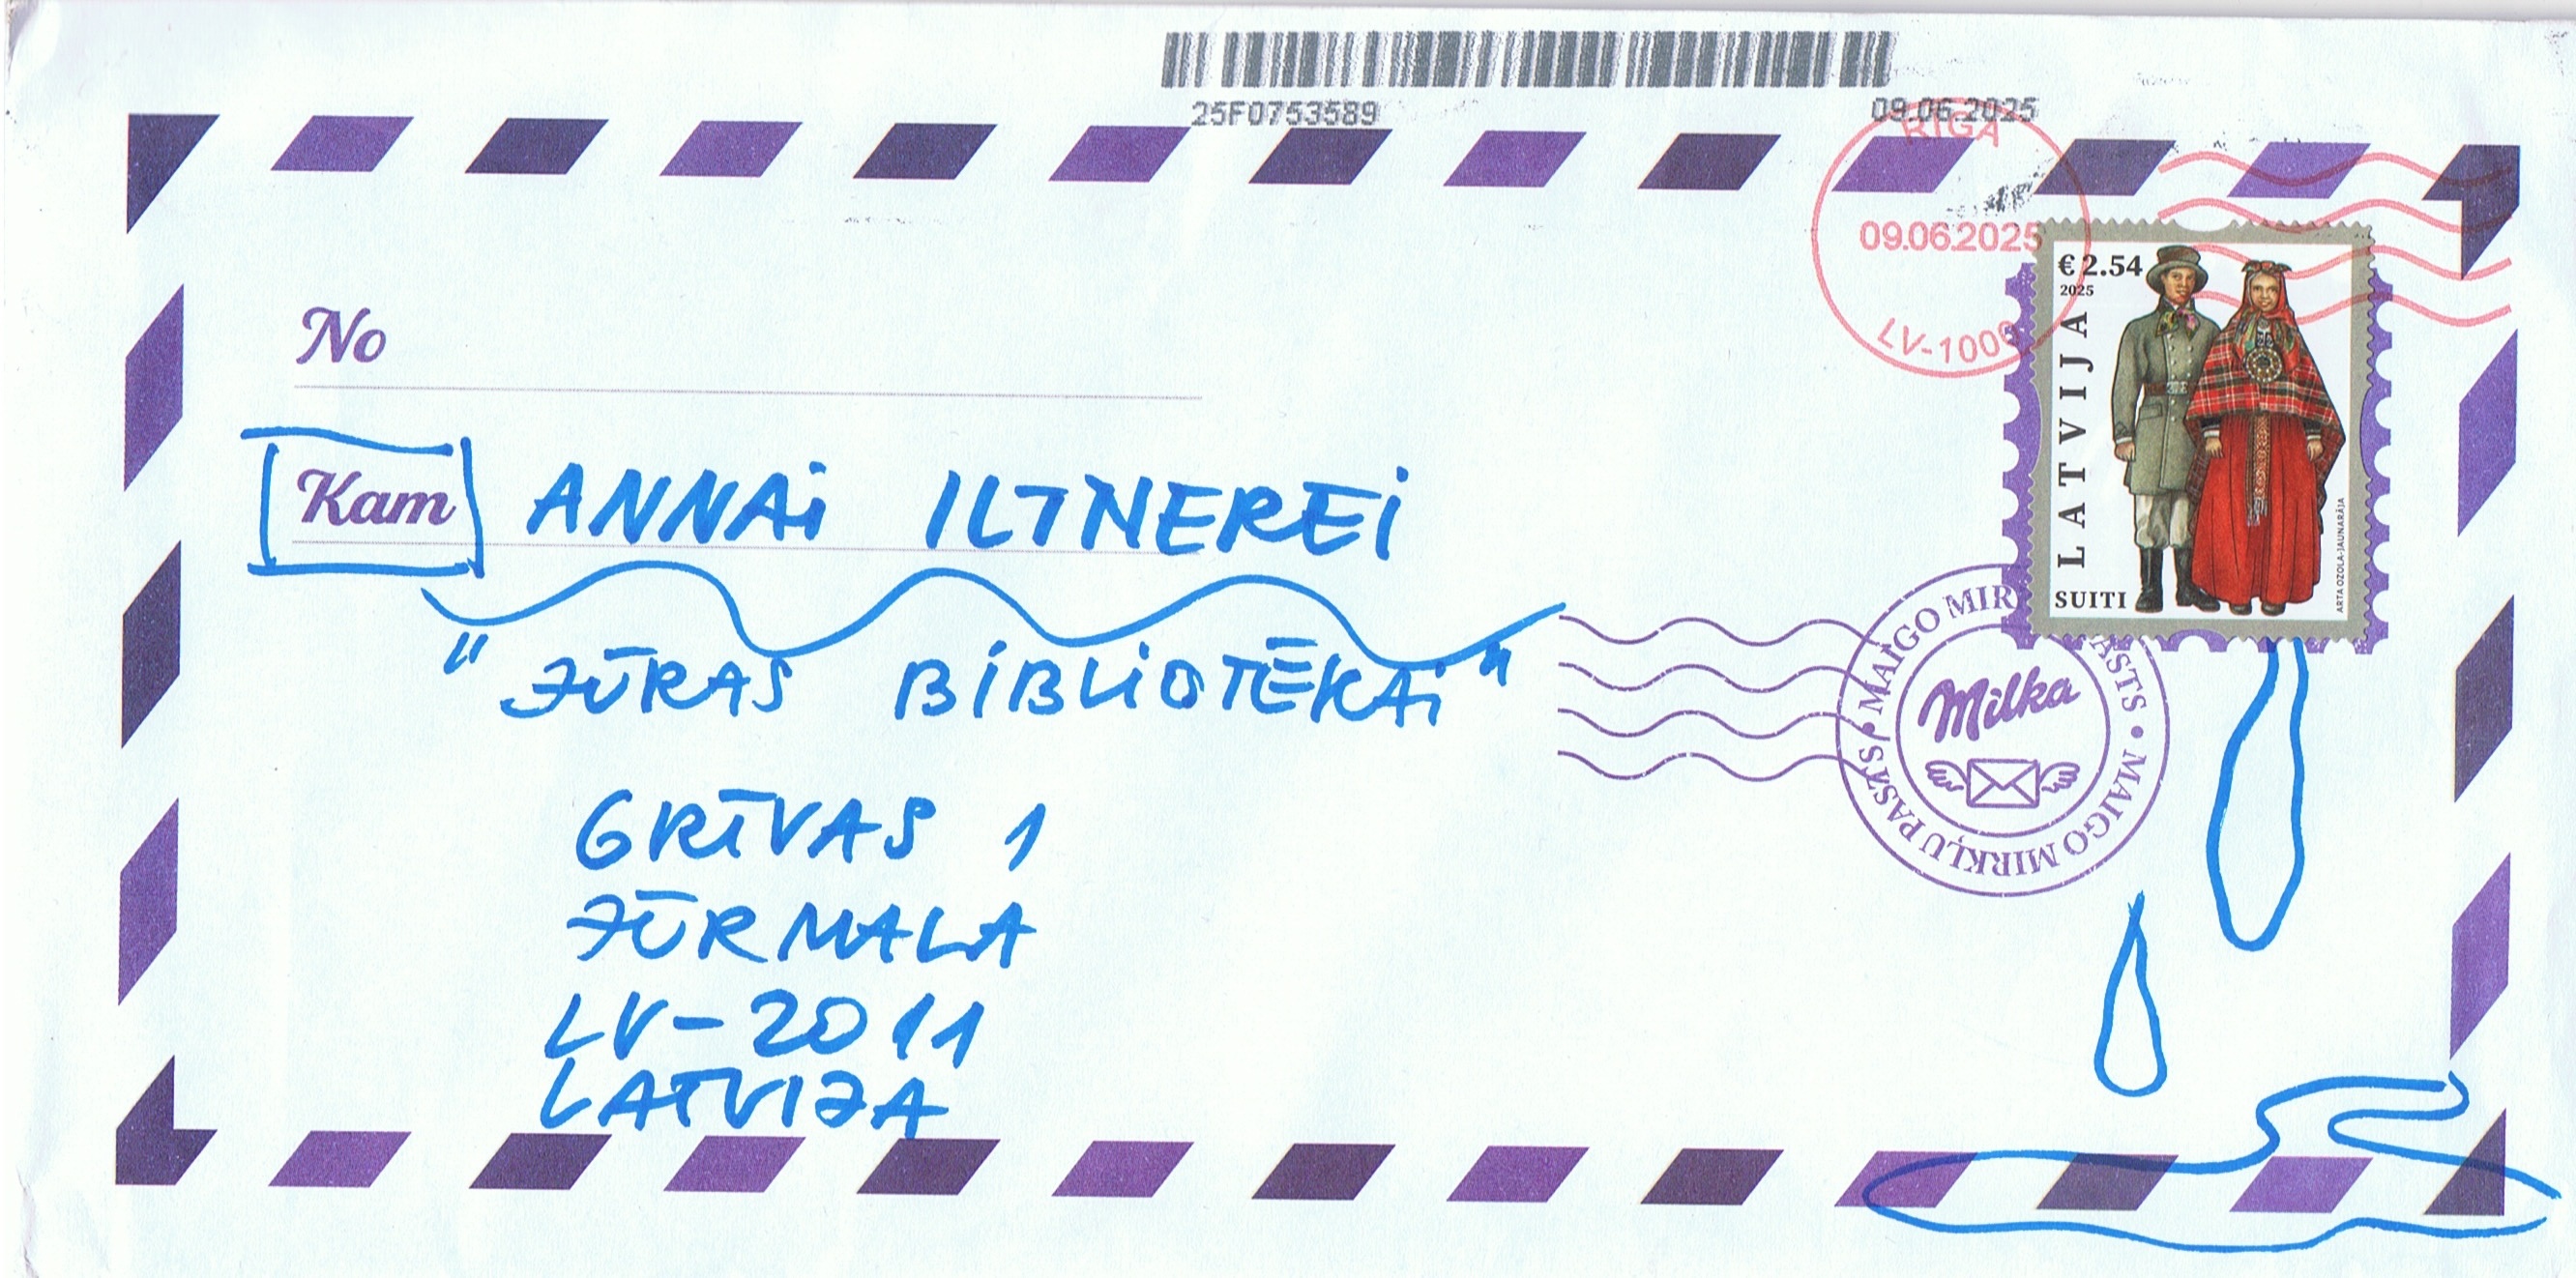 25F0753589 09.06.2025
RIGA
09.06.2025
LV-1000
€ 2.54
2025
LATVIJA
SUITI
ARTA OZOLA-JAUNARĀJA
No
Kam ANNAI ILTNEREI
"JŪRAS BIBLIOTĒKAI"
GRĪVAS 1
JŪRMALA
LV-2011
LATVIJA
MAIGO MIR ASTS • MAIGO MIRKĻU PASTS •
Milka